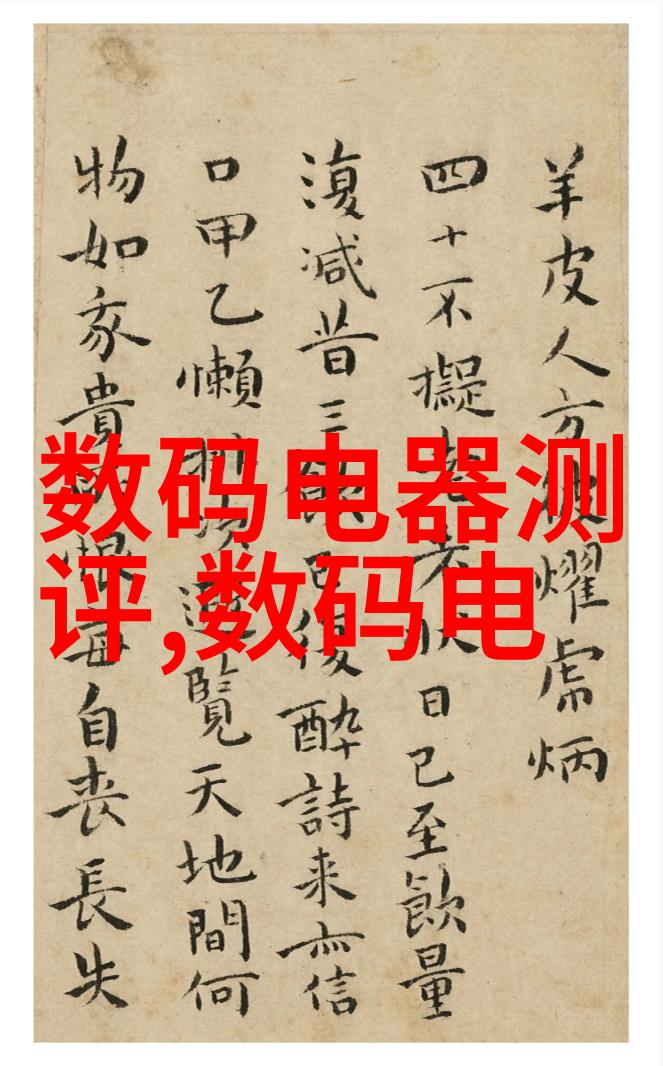 羊皮人方耀虎炳
四十不擬日已至飲量
復減昔三後醉詩来亦信
口甲乙懶覽天地間何
物如家貴恨每自丧長失
数码电器测
评,数码电